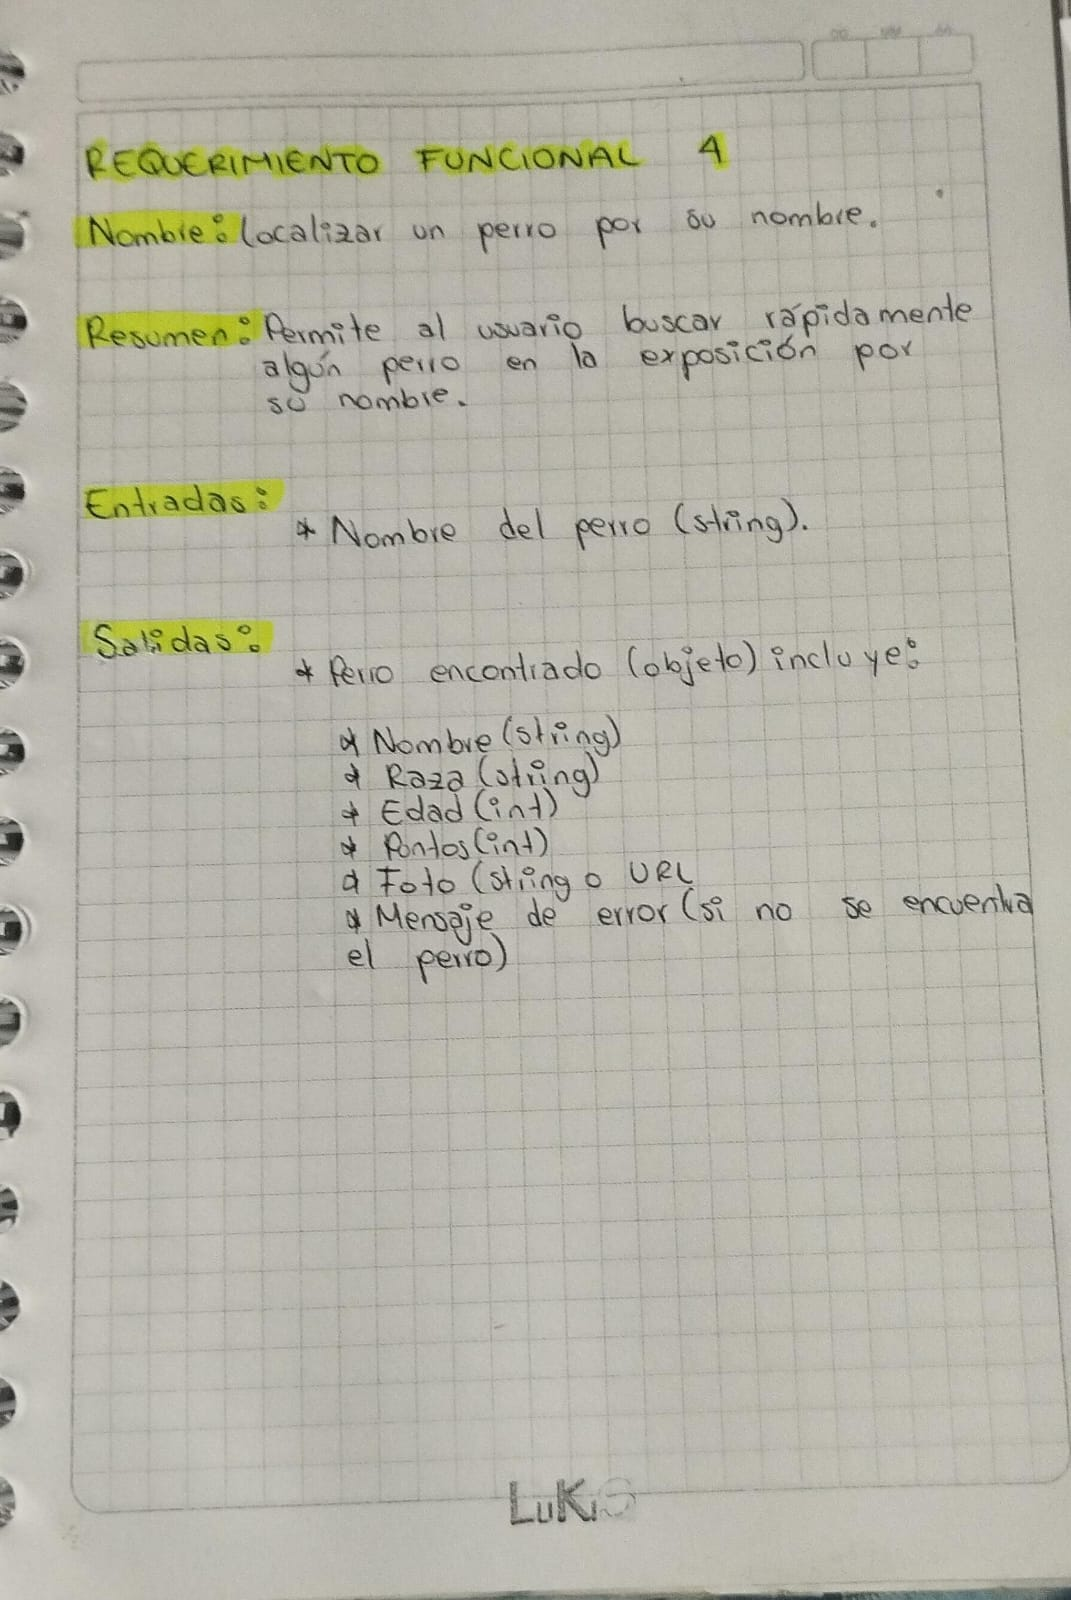 REQUERIMIENTO FUNCIONAL 4
Nombre: Localizar un perro por su nombre.
Resumen: Permite al usuario buscar rápidamente
algún perro en la exposición por
su nombre.
Entradas:
* Nombre del perro (string).
Salidas:
* Perro encontrado (objeto) incluye:
* Nombre (string)
* Raza (string)
* Edad (int)
* Puntos (int)
* Foto (string o URL
* Mensaje de error (si no se encuentra
el perro)
LuKi